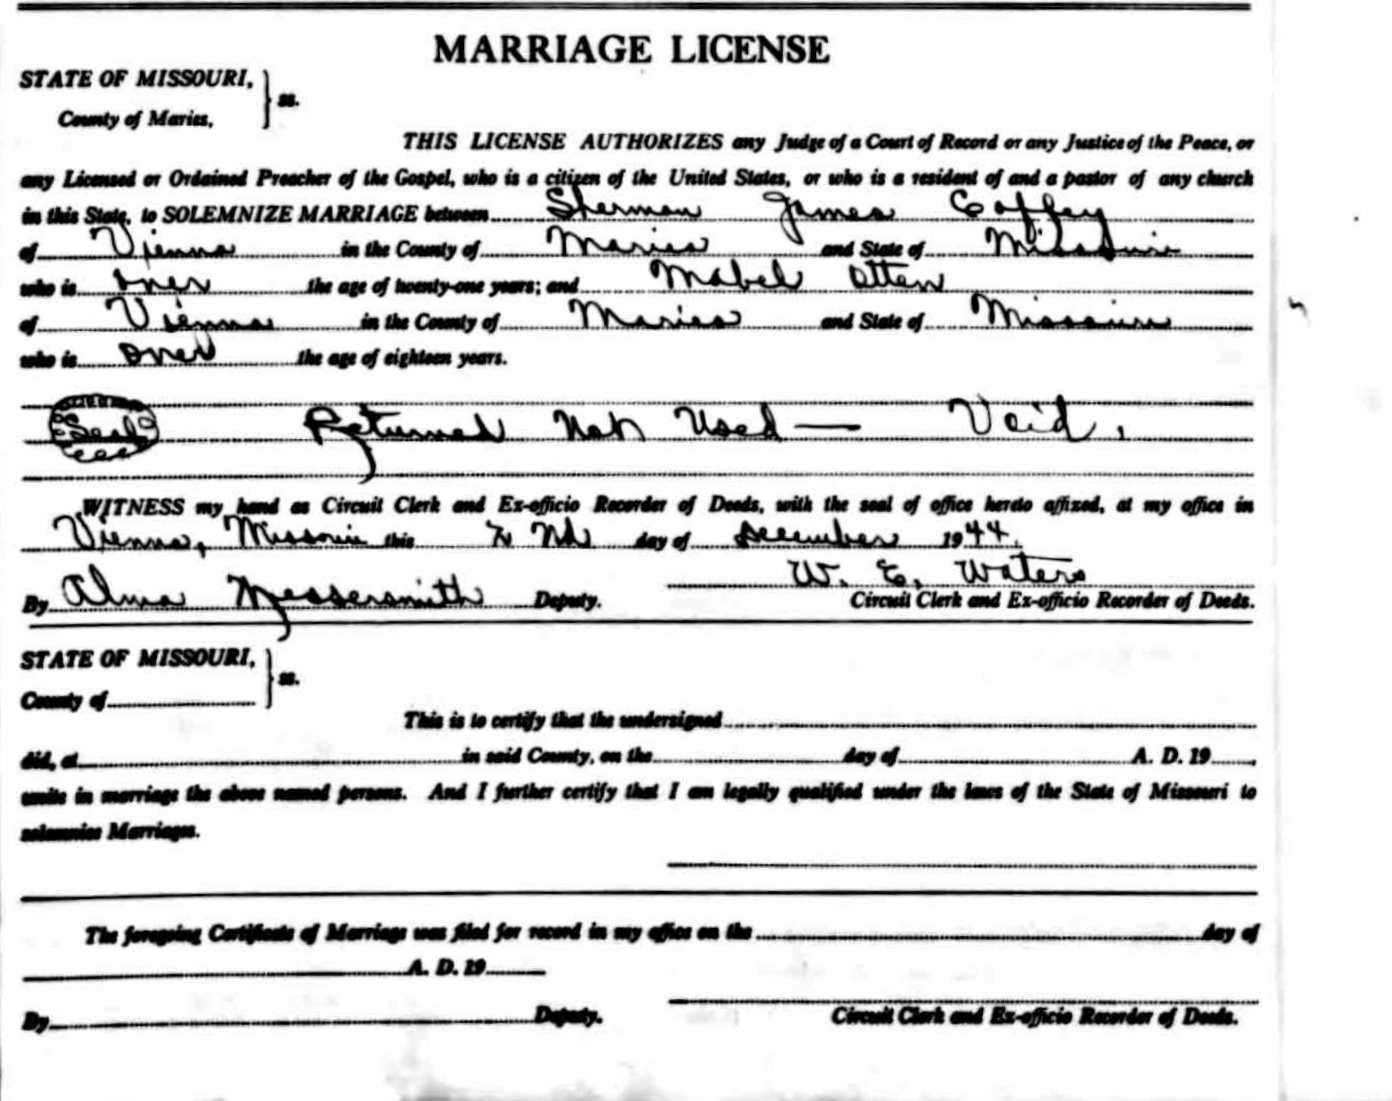 MARRIAGE LICENSE
STATE OF MISSOURI,
County of Maries,
ss.
THIS LICENSE AUTHORIZES any Judge of a Court of Record or any Justice of the Peace, or
any Licensed or Ordained Preacher of the Gospel, who is a citizen of the United States, or who is a resident of and a pastor of any church
in this State, to SOLEMNIZE MARRIAGE between Sherman James Coffey
of Vienna in the County of Maries and State of Missouri
who is over the age of twenty-one years; and Mabel Otten
of Vienna in the County of Maries and State of Missouri
who is over the age of eighteen years.
Seal Returned Not Used — Void.
WITNESS my hand as Circuit Clerk and Ex-officio Recorder of Deeds, with the seal of office hereto affixed, at my office in
Vienna, Missouri this 2 Nd day of December 1944.
W. E. Waters
By Alma Messersmith Deputy. Circuit Clerk and Ex-officio Recorder of Deeds.
STATE OF MISSOURI,
ss.
County of
This is to certify that the undersigned
did, at in said County, on the day of A. D. 19 ,
unite in marriage the above named persons. And I further certify that I am legally qualified under the laws of the State of Missouri to
solemnize Marriages.
The foregoing Certificate of Marriage was filed for record in my office on the day of
A. D. 19
By Deputy. Circuit Clerk and Ex-officio Recorder of Deeds.